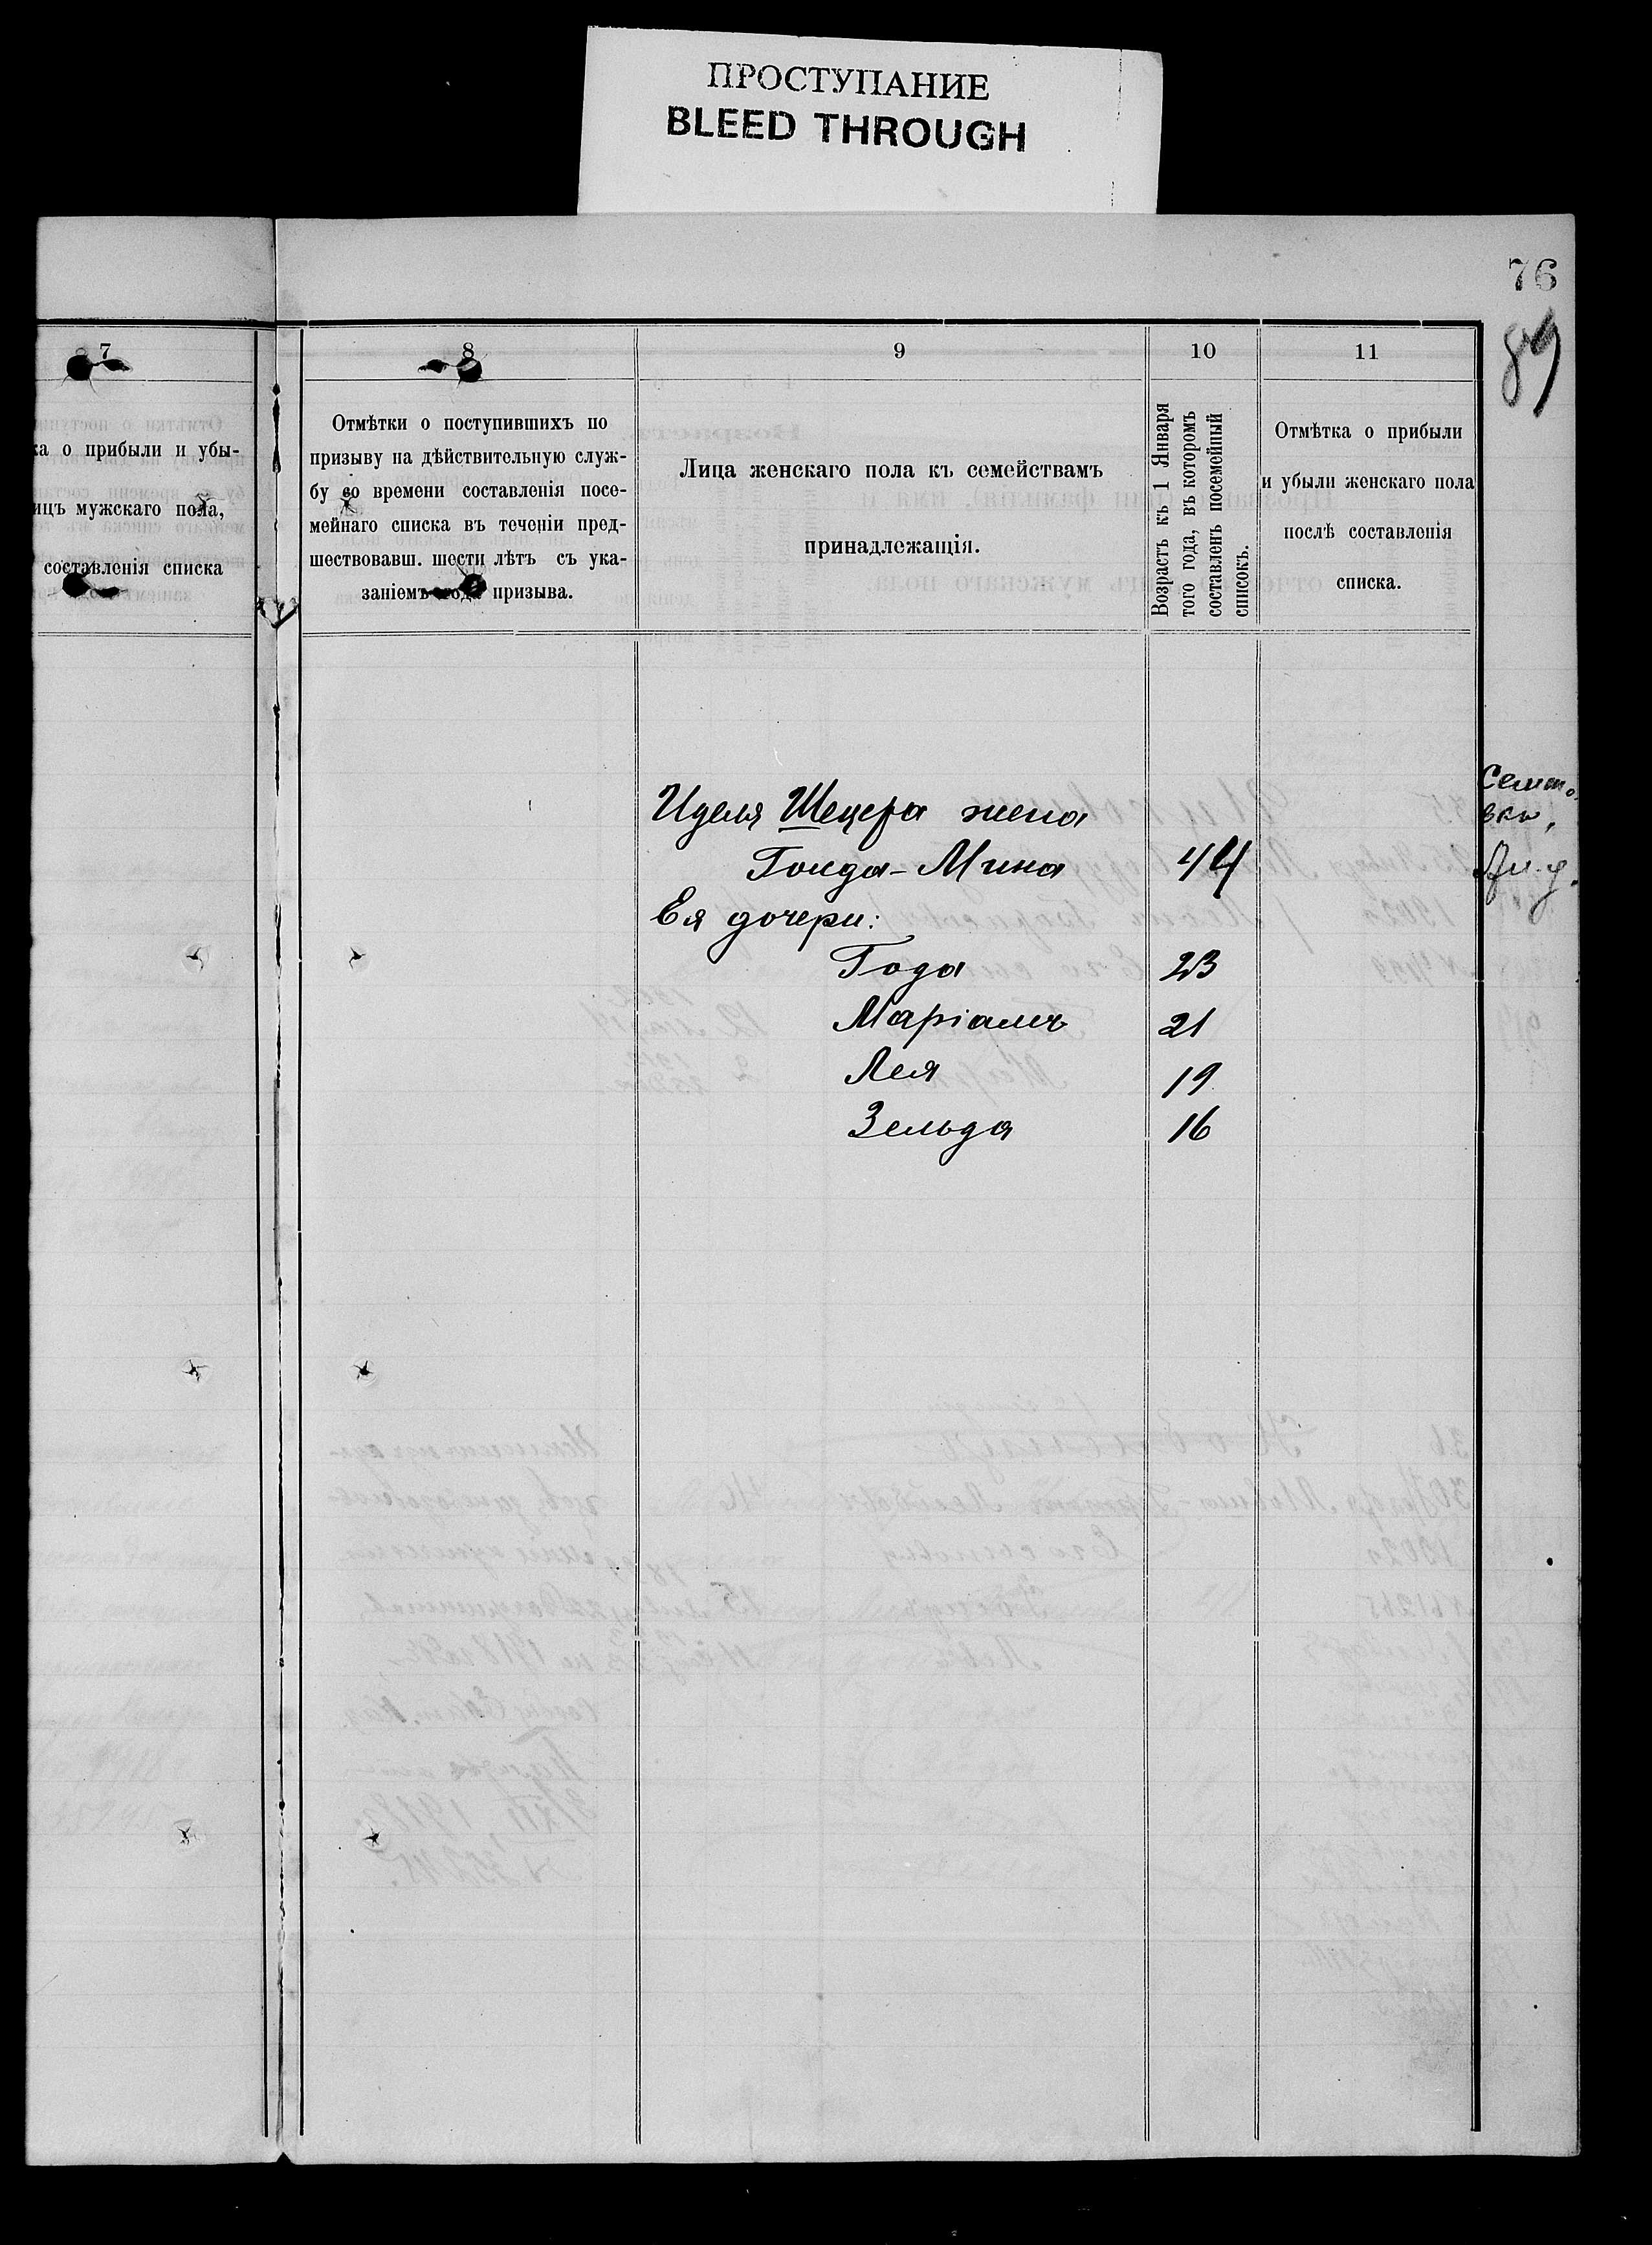 ПРОСТУПАНИЕ
BLEED THROUGH
76
89
7
ка о прибыли и убы-
ицъ мужскаго пола,
составленія списка
8
Отмѣтки о поступившихъ по
призыву на дѣйствительную служ-
бу со времени составленія посе-
мейнаго списка въ теченіи пред-
шествовавш. шести лѣтъ съ ука-
заніемъ года призыва.
9
Лица женскаго пола къ семействамъ
принадлежащія.
10
Возрастъ къ 1 Января
того года, въ которомъ
составленъ посемейный
списокъ.
11
Отмѣтка о прибыли
и убыли женскаго пола
послѣ составленія
списка.
Иделя Шецера жена
Гонда-Мина 44
Ея дочери:
Года 23
Маріамъ 21
Лея 19
Зельда 16